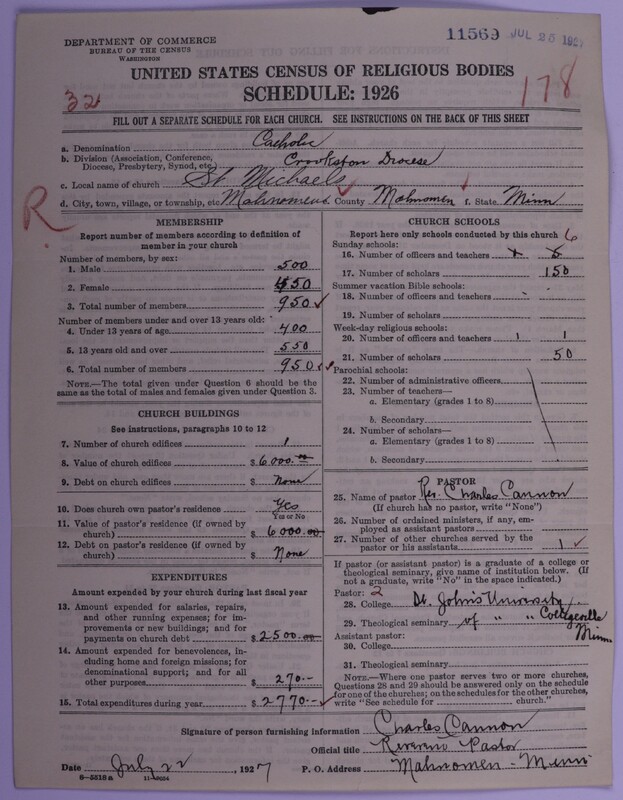 DEPARTMENT OF COMMERCE
BUREAU OF THE CENSUS
WASHINGTON
11569 JUL 26 1927
UNITED STATES CENSUS OF RELIGIOUS BODIES
SCHEDULE: 1926
32
178
FILL OUT A SEPARATE SCHEDULE FOR EACH CHURCH. SEE INSTRUCTIONS ON THE BACK OF THIS SHEET
a. Denomination Catholic
b. Division (Association, Conference, Diocese, Presbytery, Synod, etc.) Crookston Diocese
c. Local name of church St. Michaels
d. City, town, village, or township, etc Mahnomen e. County Mahnomen f. State Minn
R
MEMBERSHIP
Report number of members according to definition of
member in your church
Number of members, by sex:
1. Male 500
2. Female 450
3. Total number of members 950
Number of members under and over 13 years old:
4. Under 13 years of age 400
5. 13 years old and over 550
6. Total number of members 950
NOTE.—The total given under Question 6 should be
same as the total of males and females given under Question 3.
CHURCH BUILDINGS
See instructions, paragraphs 10 to 12
7. Number of church edifices 1
8. Value of church edifices $ 6000.00
9. Debt on church edifices $ None
10. Does church own pastor's residence? Yes
Yes or No
11. Value of pastor's residence (if owned by
church) $ 6000.00
12. Debt on pastor's residence (if owned by
church) $ None
EXPENDITURES
Amount expended by your church during last fiscal year
13. Amount expended for salaries, repairs,
and other running expenses; for im-
provements or new buildings; and for
payments on church debt $ 2500.00
14. Amount expended for benevolences, in-
cluding home and foreign missions; for
denominational support; and for all
other purposes $ 270.-
15. Total expenditures during year $ 2770.-
CHURCH SCHOOLS
Report here only schools conducted by this church
6
Sunday schools:
16. Number of officers and teachers
17. Number of scholars 150
Summer vacation Bible schools:
18. Number of officers and teachers
19. Number of scholars
Week-day religious schools:
20. Number of officers and teachers 1 1
21. Number of scholars 50
Parochial schools:
22. Number of administrative officers
23. Number of teachers—
a. Elementary (grades 1 to 8)
b. Secondary
24. Number of scholars—
a. Elementary (grades 1 to 8)
b. Secondary
PASTOR
25. Name of pastor Rev. Charles Cannon
(If church has no pastor, write "None")
26. Number of ordained ministers, if any, em-
ployed as assistant pastors
27. Number of other churches served by the
pastor or his assistants 1
If pastor (or assistant pastor) is a graduate of a college or
theological seminary, give name of institution below. (If
not a graduate, write "No" in the space indicated.)
Pastor: 2
28. College St. John's University
29. Theological seminary of " " Collegeville
Minn
Assistant pastor:
30. College
31. Theological seminary
NOTE.—Where one pastor serves two or more churches,
Questions 28 and 29 should be answered only on the schedule
for one of the churches; on the schedules for the other churches,
write "See schedule for church."
Signature of person furnishing information Charles Cannon
Official title Reverend Pastor
Date July 22, 1927 P. O. Address Mahnomen - Minn
8-5818a 11-9024